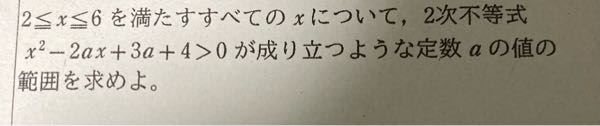 2≦x≦6 を満たすすべての x について，2次不等式
x²−2ax+3a+4>0 が成り立つような定数 a の値の
範囲を求めよ。